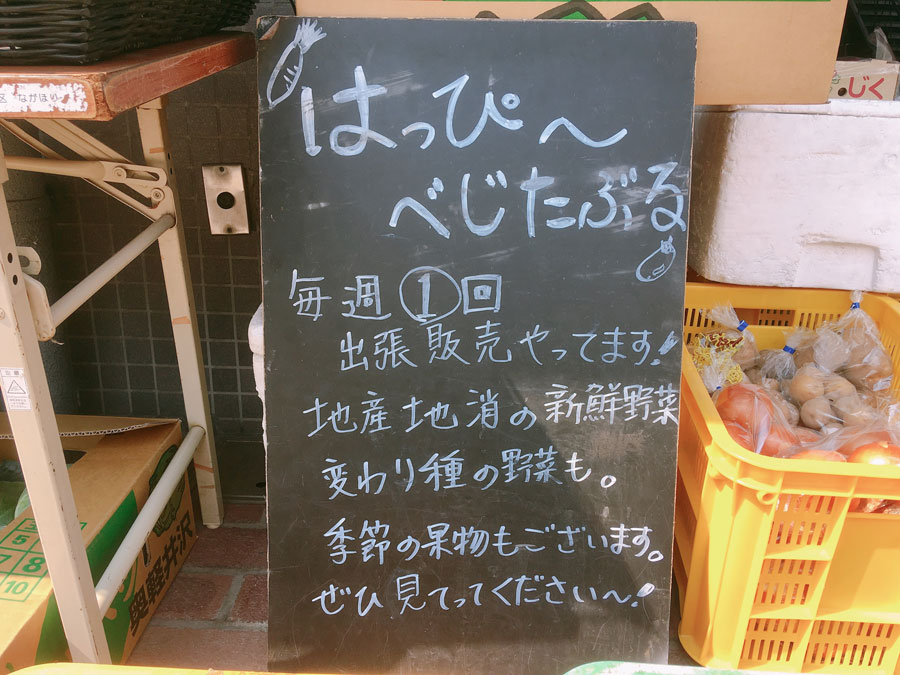 はっぴ〜
べじたぶる
毎週①回
出張販売やってます!
地産地消の新鮮野菜
変わり種の野菜も。
季節の果物もございます。
ぜひ見てってください〜!
区 ながほり
じく
注意
5
7 8
10
奥軽井沢